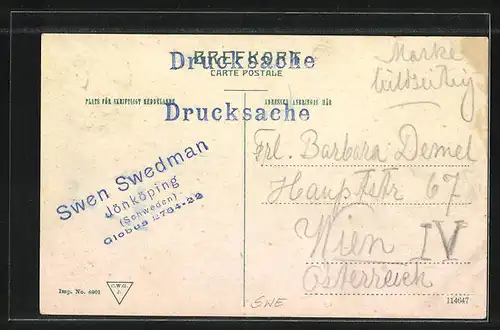 BREFKORT
Drucksache
CARTE POSTALE
Marke
PLATS FÖR SKRIFTLIGT MEDDELANDE
ADRESSEN ANBRINGES HÄR
Drucksache
Swen Swedman
Jönköping
(Schweden)
Globus 2764-22
Frl. Barbara Demel
Hauptstr 67
Wien IV
Österreich
Imp. No. 4001
SWE
114647